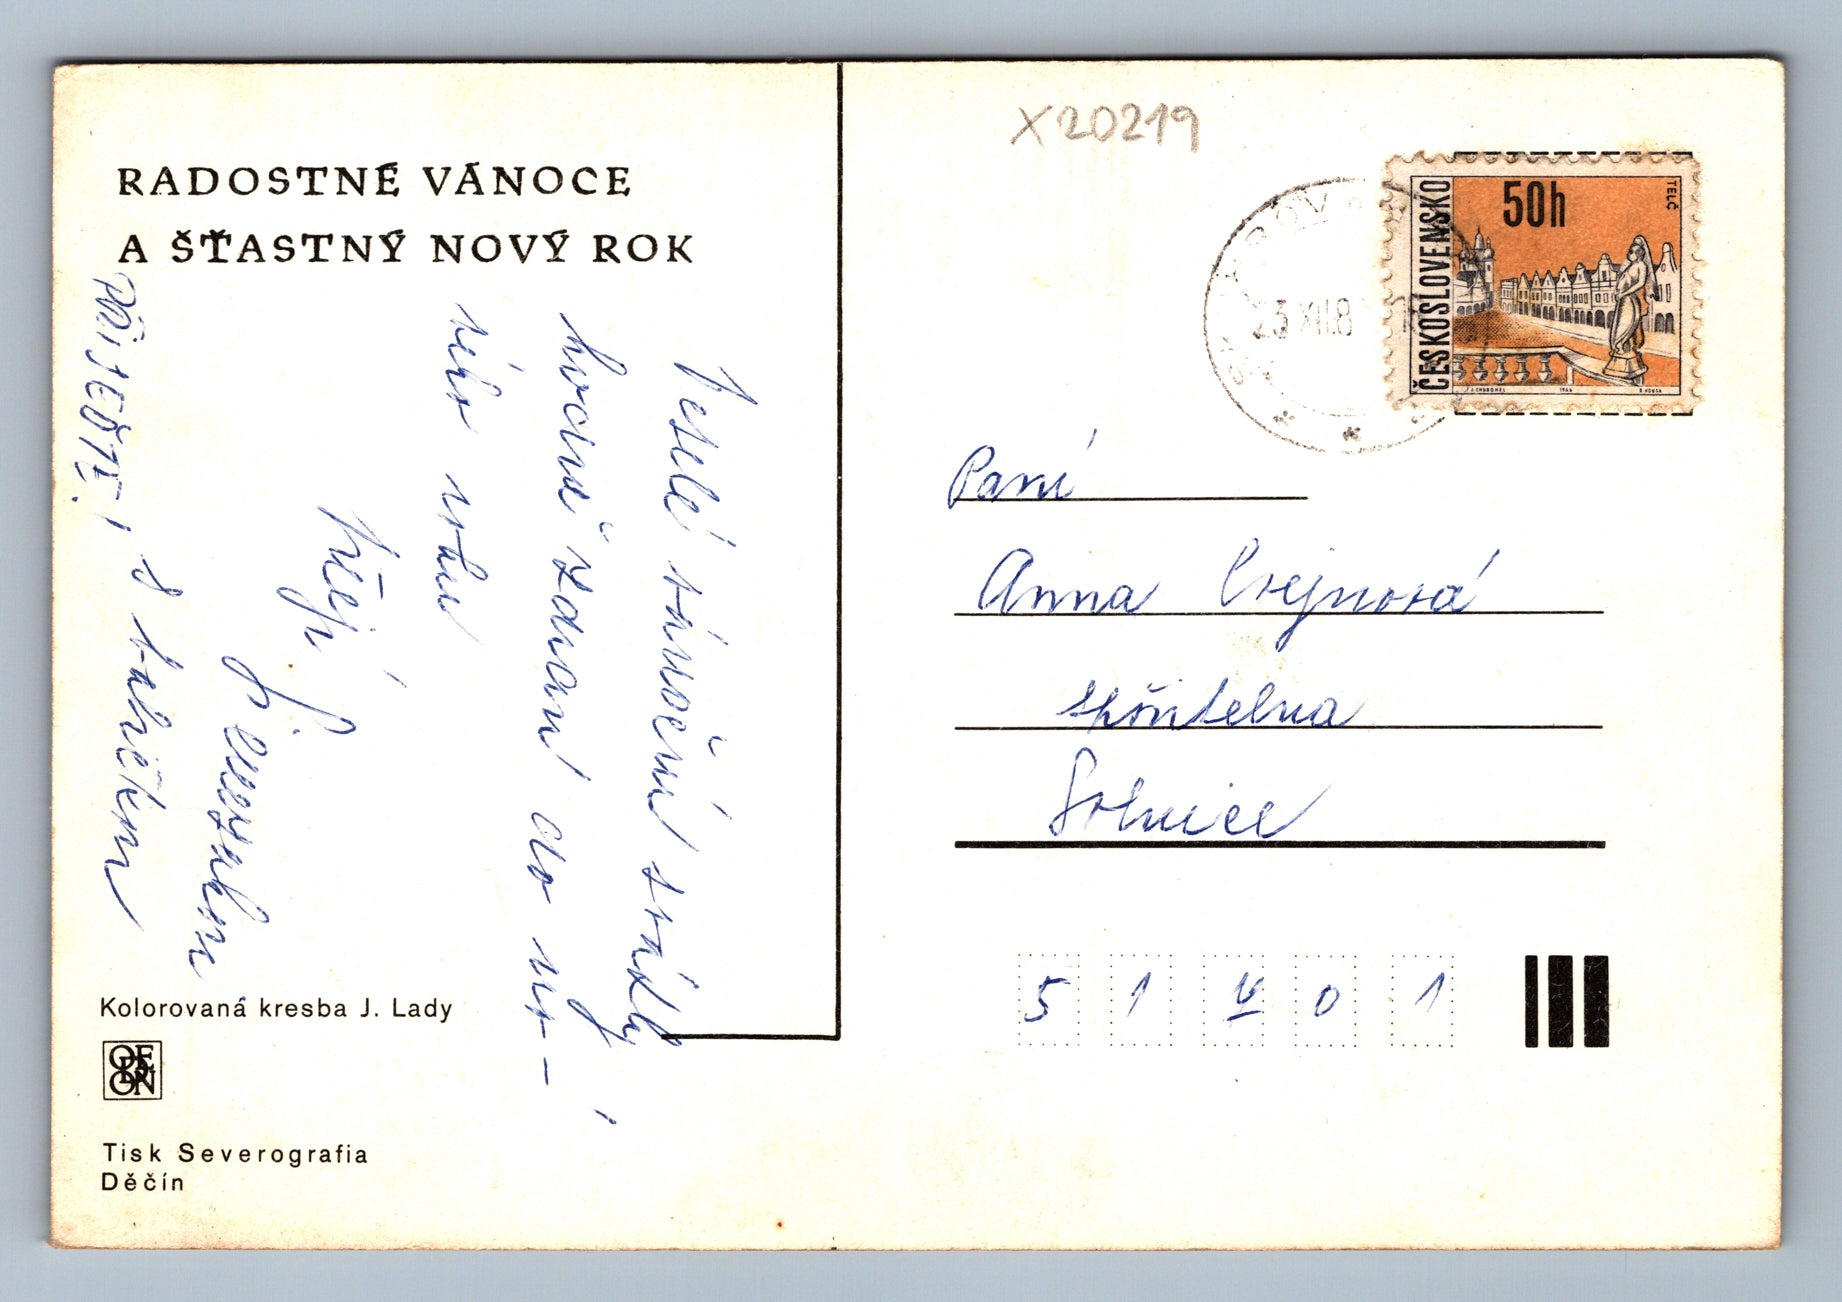 X20219
RADOSTNÉ VÁNOCE
A ŠŤASTNÝ NOVÝ ROK
Veselé vánoční svátky
hodně zdraví do no-
vého roku
Přejí
s tatíčkem
PŘIJEĎTE!
Kolorovaná kresba J. Lady
ODEON
Tisk Severografia
Děčín
ČESKOSLOVENSKO
50h
TELČ
1966
23.XII.8
Paní
Anna
spořitelna
Solnice
51701